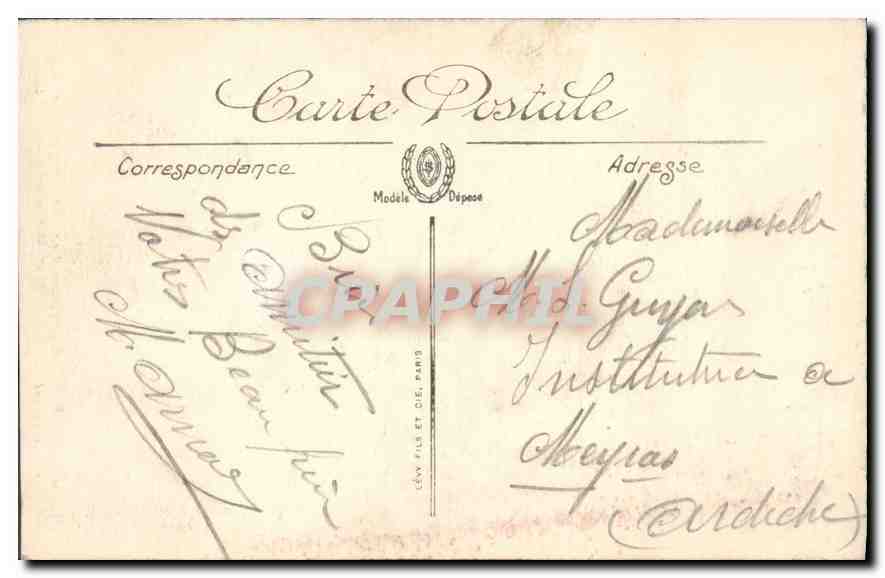 Carte Postale
Correspondance
Adresse
Modèle Déposé
Amitiés
de
Votre Beau
M.
LÉVY FILS ET CIE, PARIS
Mademoiselle
Institutrice a
Meyras
(Ardèche)
CPAPHIL